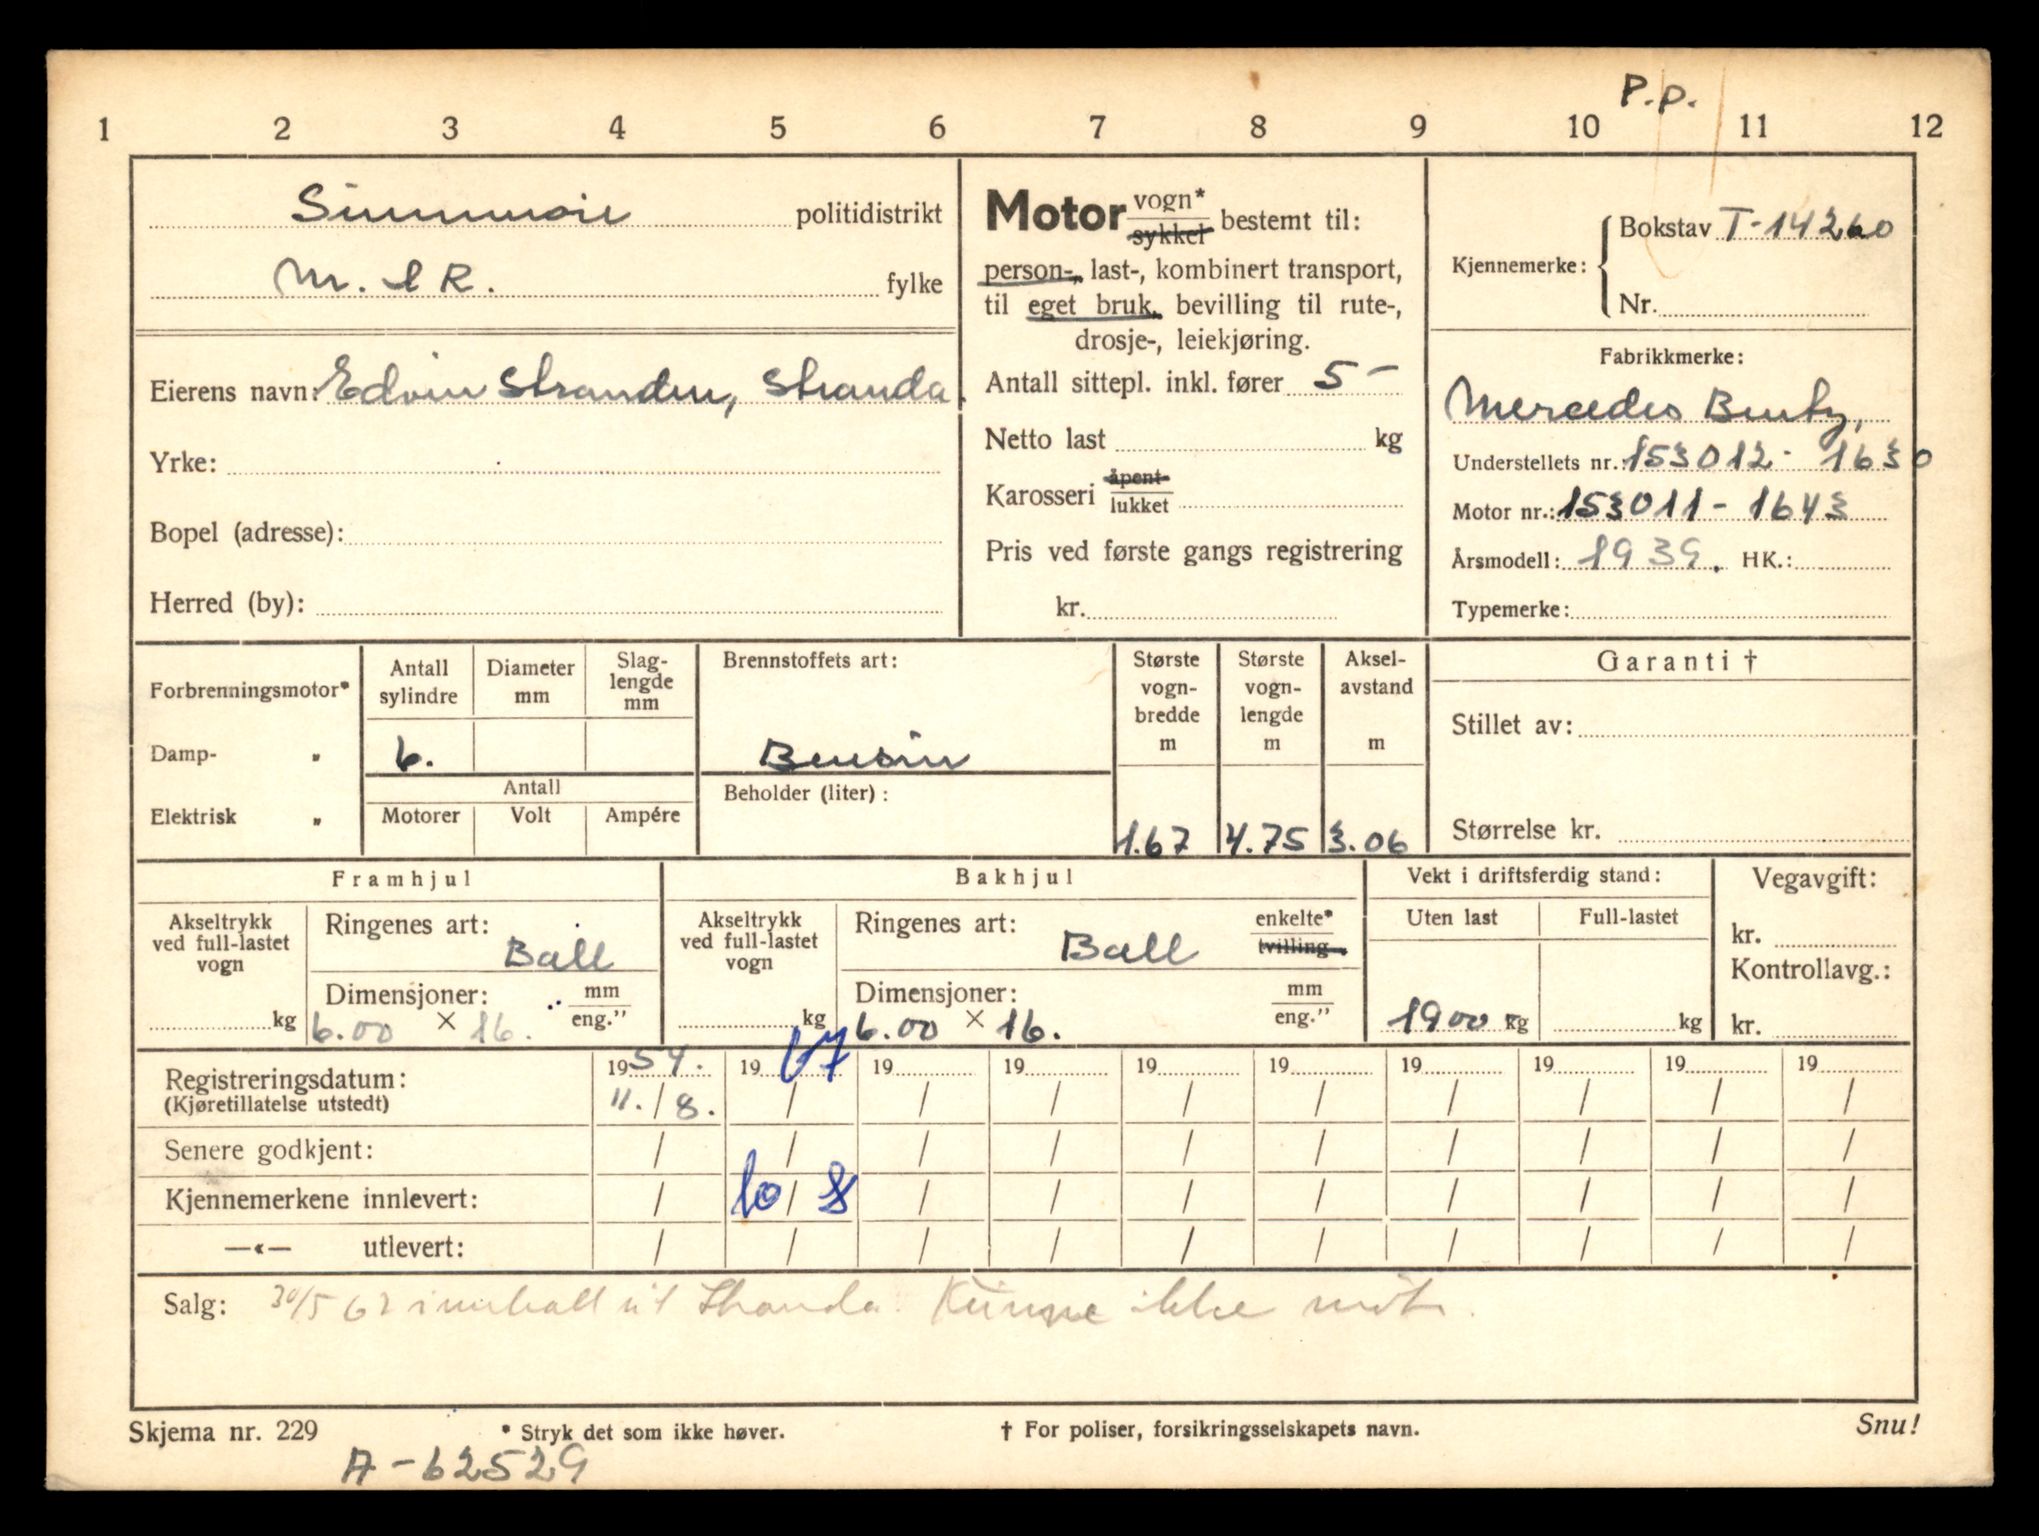 P.p.
1 2 3 4 5 6 7 8 9 10 11 12
Sunnmøre politidistrikt
M. & R. fylke
Eierens navn: Edvin Stranden, Stranda.
Yrke:
Bopel (adresse):
Herred (by):
Motor vogn* / sykkel bestemt til:
person-, last-, kombinert transport,
til eget bruk, bevilling til rute-,
drosje-, leiekjøring.
Antall sittepl. inkl. fører 5-
Netto last kg
Karosseri åpent / lukket
Pris ved første gangs registrering
kr.
Kjennemerke: Bokstav T-14260
Nr.
Fabrikkmerke:
Mercedes Bentz,
Understellets nr.: 153012- 1630
Motor nr.: 153011-1643
Årsmodell: 1939. HK.:
Typemerke:
Forbrenningsmotor*
Damp- „
Elektrisk „
Antall sylindre
Diameter mm
Slag-lengde mm
6.
Antall
Motorer Volt Ampére
Brennstoffets art:
Bensin
Beholder (liter):
Største vogn-bredde m
1.67
Største vogn-lengde m
4.75
Aksel-avstand m
3.06
Garanti †
Stillet av:
Størrelse kr.
Framhjul
Akseltrykk ved full-lastet vogn
kg
Ringenes art:
Ball
Dimensjoner: mm / eng.”
6.00 × 16.
Bakhjul
Akseltrykk ved full-lastet vogn
kg
Ringenes art: enkelte* / tvilling
Ball
Dimensjoner: mm / eng.”
6.00 × 16.
Vekt i driftsferdig stand:
Uten last Full-lastet
1900 kg kg
Vegavgift:
kr.
Kontrollavg.:
kr.
Registreringsdatum: 1954. 19 67 19 19 19 19 19 19 19 19
(Kjøretillatelse utstedt) 11./8. / / / / / / / / /
Senere godkjent: / / / / / / / / / /
Kjennemerkene innlevert: / 10/8 / / / / / / / /
—«— utlevert: / / / / / / / / / /
Salg: 30/5 62 innkalt til Stranda. Kunne ikke møte.
Skjema nr. 229 * Stryk det som ikke høver. † For poliser, forsikringsselskapets navn. Snu!
A-62529